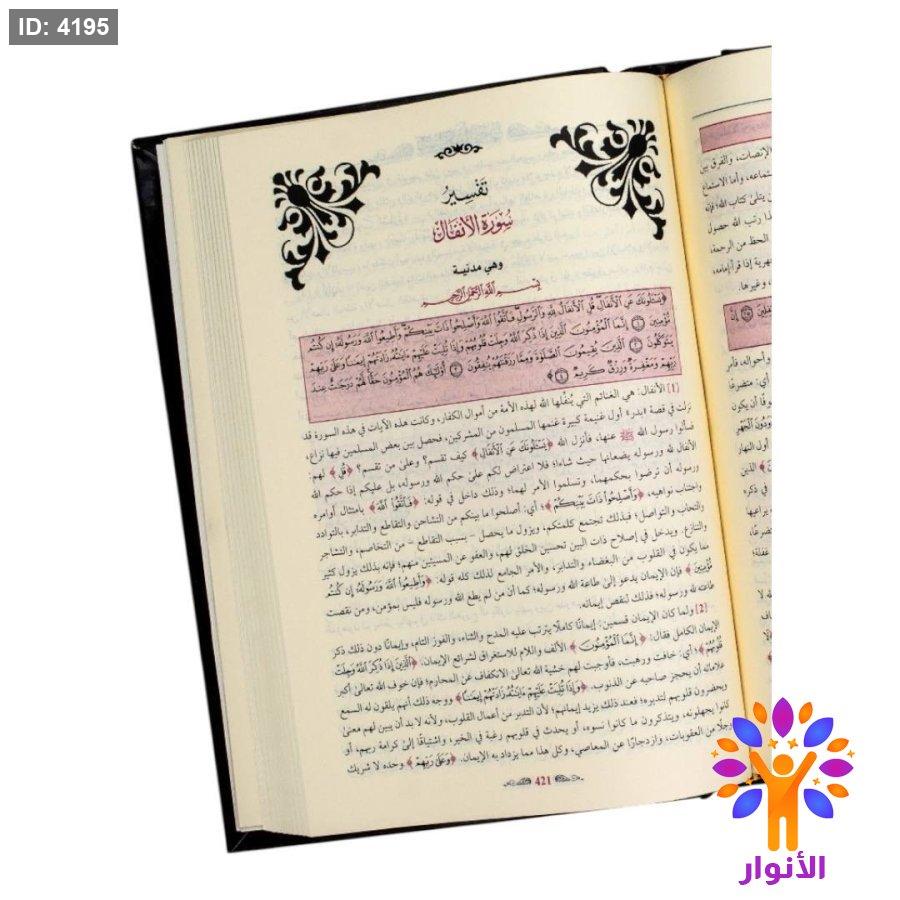 ID: 4195
تَفْسِيرُ
سُورَة الأنفَال
وهي مدنية
بِسْمِ اللَّهِ الرَّحْمَنِ الرَّحِيمِ
﴿يَسْـَٔلُونَكَ عَنِ ٱلْأَنفَالِ قُلِ ٱلْأَنفَالُ لِلَّهِ وَٱلرَّسُولِ فَٱتَّقُوا۟ ٱللَّهَ وَأَصْلِحُوا۟ ذَاتَ بَيْنِكُمْ وَأَطِيعُوا۟ ٱللَّهَ وَرَسُولَهُۥٓ إِن كُنتُم
مُّؤْمِنِينَ ۝١ إِنَّمَا ٱلْمُؤْمِنُونَ ٱلَّذِينَ إِذَا ذُكِرَ ٱللَّهُ وَجِلَتْ قُلُوبُهُمْ وَإِذَا تُلِيَتْ عَلَيْهِمْ ءَايَٰتُهُۥ زَادَتْهُمْ إِيمَٰنًا وَعَلَىٰ رَبِّهِمْ
يَتَوَكَّلُونَ ۝٢ ٱلَّذِينَ يُقِيمُونَ ٱلصَّلَوٰةَ وَمِمَّا رَزَقْنَٰهُمْ يُنفِقُونَ ۝٣ أُو۟لَٰٓئِكَ هُمُ ٱلْمُؤْمِنُونَ حَقًّا لَّهُمْ دَرَجَٰتٌ عِندَ
رَبِّهِمْ وَمَغْفِرَةٌ وَرِزْقٌ كَرِيمٌ ۝٤﴾
[1] الأنفال: هي الغنائم التي يُنَفِّلها الله لهذه الأمة من أموال الكفار، وكانت هذه الآيات في هذه السورة قد
نزلت في قصة «بدر» أول غنيمة كبيرة غنمها المسلمون من المشركين، فحصل بين بعض المسلمين فيها نزاع،
فسألوا رسول الله ﷺ عنها، فأنزل الله ﴿يَسْـَٔلُونَكَ عَنِ ٱلْأَنفَالِ﴾ كيف تقسم؟ وعلى من تقسم؟ ﴿قُلِ﴾ لهم:
الأنفال لله ورسوله يضعانها حيث شاءا؛ فلا اعتراض لكم على حكم الله ورسوله، بل عليكم إذا حكم الله
ورسوله أن ترضوا بحكمهما، وتسلموا الأمر لهما؛ وذلك داخل في قوله: ﴿فَٱتَّقُوا۟ ٱللَّهَ﴾ بامتثال أوامره
واجتناب نواهيه، ﴿وَأَصْلِحُوا۟ ذَاتَ بَيْنِكُمْ﴾؛ أي: أصلحوا ما بينكم من التشاحن والتقاطع والتدابر، بالتوادد
والتحاب والتواصل؛ فبذلك تجتمع كلمتكم، ويزول ما يحصل – بسبب التقاطع – من التخاصم، والتشاجر
والتنازع. ويدخل في إصلاح ذات البين تحسين الخلق لهم، والعفو عن المسيئين منهم؛ فإنه بذلك يزول كثير
مما يكون في القلوب من البغضاء، والتدابر، والأمر الجامع لذلك كله قوله: ﴿وَأَطِيعُوا۟ ٱللَّهَ وَرَسُولَهُۥٓ إِن كُنتُم
مُّؤْمِنِينَ﴾ فإن الإيمان يدعو إلى طاعة الله ورسوله؛ كما أن من لم يطع الله ورسوله فليس بمؤمن، ومن نقصت
طاعته لله ورسوله؛ فذلك لنقص إيمانه.
[2] ولما كان الإيمان قسمين: إيمانًا كاملًا يترتب عليه المدح والثناء، والفوز التام، وإيمانًا دون ذلك ذكر
الإيمان الكامل فقال: ﴿إِنَّمَا ٱلْمُؤْمِنُونَ﴾ الألف واللام للاستغراق لشرائع الإيمان: ﴿ٱلَّذِينَ إِذَا ذُكِرَ ٱللَّهُ وَجِلَتْ
قُلُوبُهُمْ﴾؛ أي: خافت ورهبت، فأوجبت لهم خشية الله تعالى الانكفاف عن المحارم؛ فإن خوف الله تعالى أكبر
علاماته أن يحجز صاحبه عن الذنوب. ﴿وَإِذَا تُلِيَتْ عَلَيْهِمْ ءَايَٰتُهُۥ زَادَتْهُمْ إِيمَٰنًا﴾ ووجه ذلك أنهم يلقون له السمع
ويحضرون قلوبهم لتدبره؛ فعند ذلك يزيد إيمانهم؛ لأن التدبر من أعمال القلوب، ولأنه لا بد أن يبين لهم معنىً
كانوا يجهلونه، ويتذكرون ما كانوا نسوه، أو يحدث في قلوبهم رغبة في الخير، واشتياقًا إلى كرامة ربهم، أو
وجلًا من العقوبات، وازدجارًا عن المعاصي، وكل هذا مما يزداد به الإيمان. ﴿وَعَلَىٰ رَبِّهِمْ﴾ وحده لا شريك
421
الإنصات، والفرق بين
الأنوار